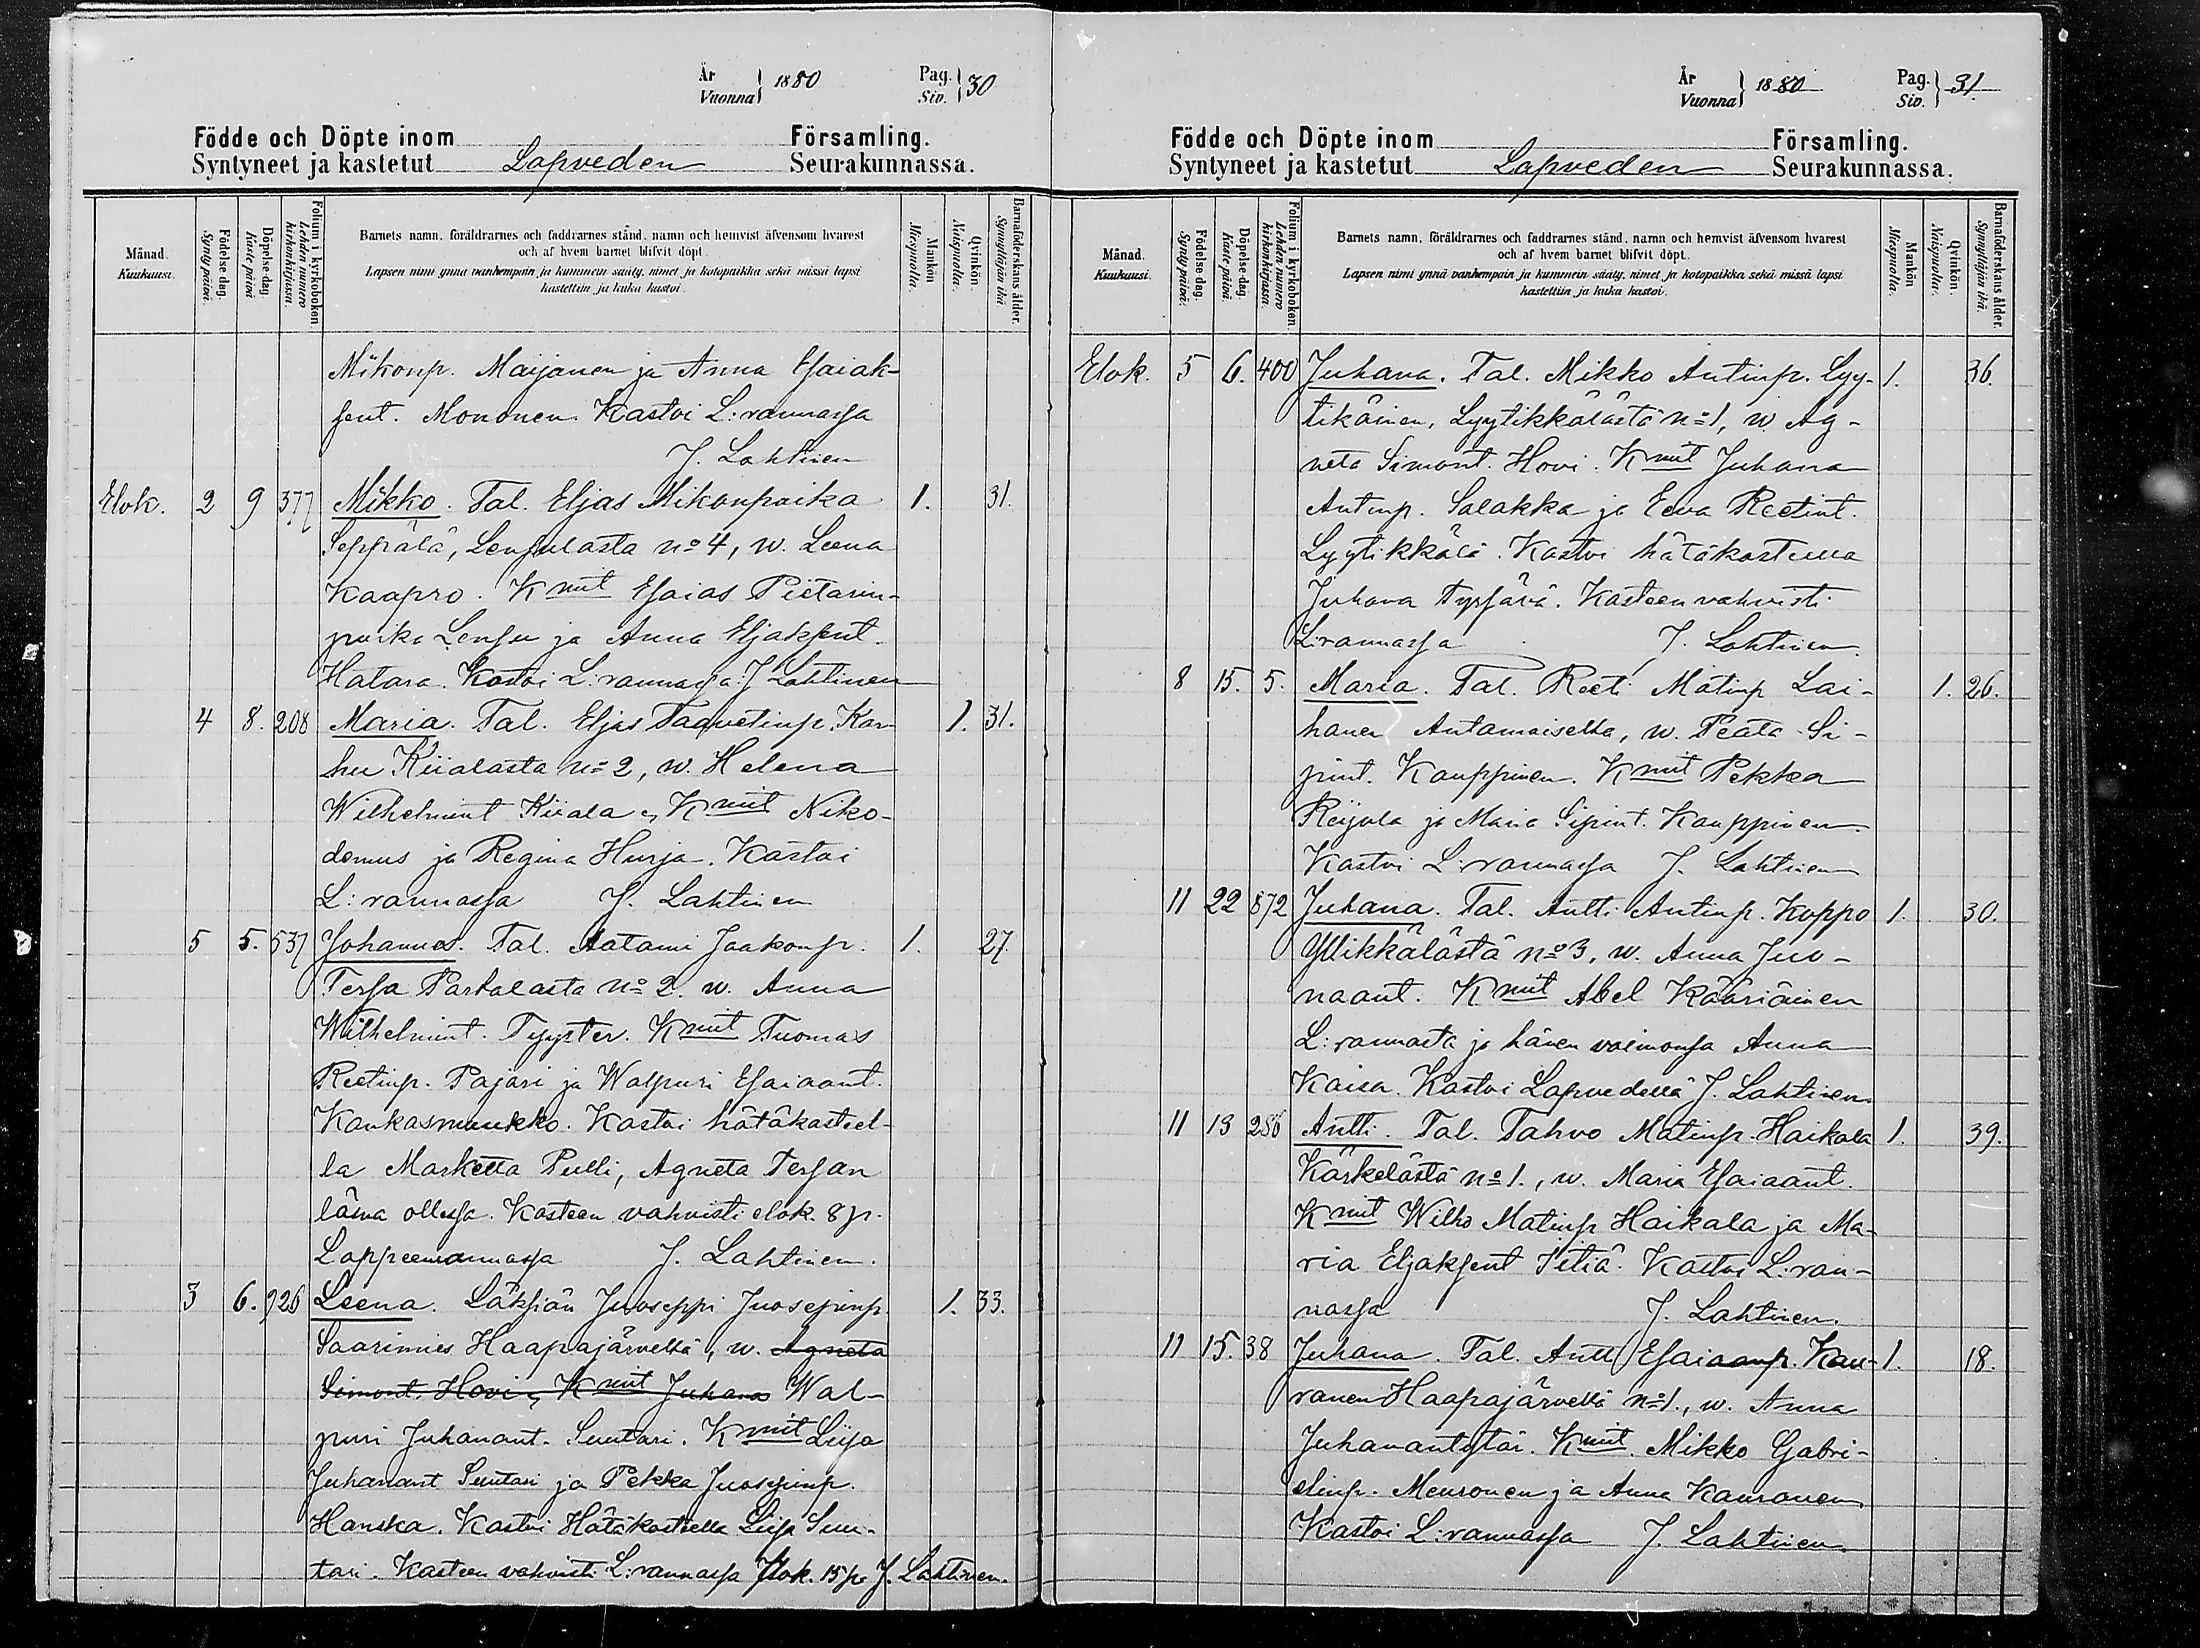 År
Vuonna } 1880
Pag.
Siv. } 30
Födde och Döpte inom Församling.
Syntyneet ja kastetut Lapveden Seurakunnassa.
Månad.
Kuukausi.
Födelse dag.
Synty päivä.
Döpelse dag.
Kaste päivä
Folium i kyrkoboken
Lehden numero kirkonkirjassa.
Barnets namn, föräldrarnes och faddrarnes stånd, namn och hemvist äfvensom hvarest
och af hvem barnet blifvit döpt.
Lapsen nimi ynnä vanhempain ja kummein sääty, nimet ja kotopaikka sekä missä lapsi
kastettiin ja kuka kastoi.
Mankön
Miespuolia.
Qvinkön.
Naispuolia.
Barnaföderskans ålder.
Synnyttäjän ikä.
Mikonp. Maijanen ja Anna Esaiak-
sent. Mononen. Kastoi L:rannassa
J. Lahtinen
Elok. 2 9 377 Mikko. Tal. Eljas Mikonpoika 1. 31.
Seppälä, Lensulasta no 4, w. Leena
Kaapro. Kmit Esaias Pietarin-
poika Lensu ja Anna Eljaksent.
Hatara. Kastoi L:rannassa J Lahtinen
4 8. 208 Maria. Tal. Eljas Taavetinp. Kar- 1. 31.
hu Kiialasta no 2, w. Helena
Wilhelmint Kiiala, Kmit Niko-
demus ja Regina Hurja. Kastoi
L:rannassa J. Lahtinen
5 5. 537 Johannes. Tal. Aatami Jaakonp. 1. 27.
Terssa Partalasta no 2. w. Anna
Wilhelmint. Tyyster. Kmit Tuomas
Reetinp. Pajari ja Walpuri Esaiaant.
Kaukasmunkko. Kastoi hätäkasteel-
la Marketta Pulli, Agneta Terssan
läsnä ollessa. Kasteen vahvisti elok. 8 p.
Lappeenrannassa J. Lahtinen.
3 6. 926 Leena. Läksiän Juoseppi Juosepinp. 1. 33.
Saarinnies Haapajärveltä, w. Agneta
Simont. Hovi, Kmit Juhana Wal-
puri Juhanant. Suutari. Kmit Liisa
Juhanant Suutari ja Pekka Juosepinp.
Hanska. Kastoi Hätäkasteella Liisa Suu-
tari. Kasteen vahvisti L:rannassa Elok. 15 p. J. Lahtinen.
År
Vuonna } 1880
Pag.
Siv. } 31.
Födde och Döpte inom Församling.
Syntyneet ja kastetut Lapveden Seurakunnassa.
Månad.
Kuukausi.
Födelse dag.
Synty päivä.
Döpelse dag.
Kaste päivä.
Folium i kyrkoboken
Lehden numero kirkonkirjassa.
Barnets namn, föräldrarnes och faddrarnes stånd, namn och hemvist äfvensom hvarest
och af hvem barnet blifvit döpt.
Lapsen nimi ynnä vanhempain ja kummein sääty, nimet ja kotopaikka sekä missä lapsi
kastettiin ja kuka kastoi.
Mankön
Miespuolia.
Qvinkön.
Naispuolia.
Barnaföderskans ålder.
Synnyttäjän ikä.
Elok. 5 6. 400 Juhana. Tal. Mikko Antinp. Lyy- 1. 36.
tikäinen, Lyytikkälästä no 1, w. Ag-
neta Simont. Hovi. Kmit Juhana
Antinp. Salakka ja Eeva Reetint.
Lyytikkälä. Kastoi hätäkasteella
Juhana Tyssävä. Kasteen vahvisti
L:rannassa J. Lahtinen.
8 15. 5. Maria. Tal. Reeti Matinp Lai- 1. 26.
hanen Antamoiselta, w. Peata Si-
pint. Kauppinen. Kmit Pekka
Reijola ja Maria Sipint. Kauppinen.
Kastoi L:rannassa J. Lahtinen
11 22 872 Juhana. Tal. Antti Antinp. Koppo 1. 30.
Yllikkälästä no 3, w. Anna Juo-
naant. Kmit Abel Kääriäinen
L:rannasta ja hänen vaimonsa Anna
Kaisa. Kastoi Lapvedellä J. Lahtinen.
11 13 286 Antti. Tal. Tahvo Matinp. Haikala 1. 39.
Kärkelästä no 1., w. Maria Esaiaant.
Kmit Wilho Matinp Haikala ja Ma-
ria Eljaksent Setiä. Kastoi L:ran-
nassa J. Lahtinen.
11 15. 38 Juhana. Tal. Antti Esaiaanp. Kau- 1. 18.
ranen Haapajärveltä no 1., w. Anna
Juhanantytär. Kmit. Mikko Gabri-
elinp. Meuronen ja Anna Kauranen.
Kastoi L:rannassa J. Lahtinen.